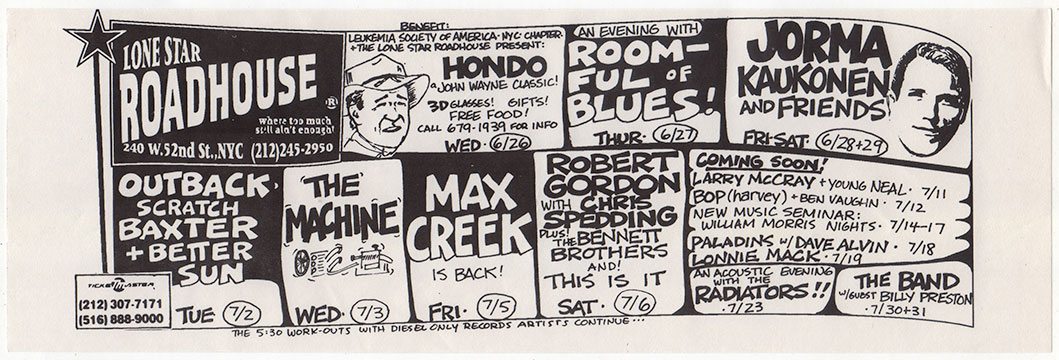 LONE STAR
ROADHOUSE ®
where too much
still ain't enough!
240 W. 52nd St., NYC (212)245-2950
BENEFIT:
LEUKEMIA SOCIETY OF AMERICA · NYC · CHAPTER
+ THE LONE STAR ROADHOUSE PRESENT:
HONDO
a JOHN WAYNE CLASSIC!
3D GLASSES! GIFTS!
FREE FOOD!
CALL 679-1939 FOR INFO
WED · 6/26
AN EVENING WITH
ROOM-
FUL OF
BLUES!
THUR · 6/27
JORMA
KAUKONEN
AND FRIENDS
FRI+SAT · 6/28+29
OUTBACK ·
SCRATCH
BAXTER
+ BETTER
SUN
TUE 7/2
TICKETMASTER
(212) 307-7171
(516) 888-9000
THE
MACHINE
WED · 7/3
MAX
CREEK
IS BACK!
FRI · 7/5
ROBERT
GORDON
WITH CHRIS
SPEDDING
PLUS! THE BENNETT
BROTHERS
AND!
THIS IS IT
SAT · 7/6
COMING SOON!
LARRY McCRAY + YOUNG NEAL · 7/11
BOP (harvey) + BEN VAUGHN · 7/12
NEW MUSIC SEMINAR:
WILLIAM MORRIS NIGHTS · 7/14-17
PALADINS W/ DAVE ALVIN · 7/18
LONNIE MACK · 7/19
AN ACOUSTIC EVENING
WITH THE
RADIATORS!!
· 7/23
THE BAND
W/GUEST BILLY PRESTON
· 7/30+31
THE 5:30 WORK-OUTS WITH DIESEL ONLY RECORDS ARTISTS CONTINUE...